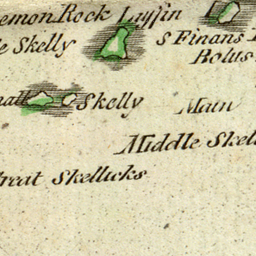 emon Rock Luffin
le Skelly
S Finans
Bolus
mall Skelly
Main
Middle Skel
reat Skellicks